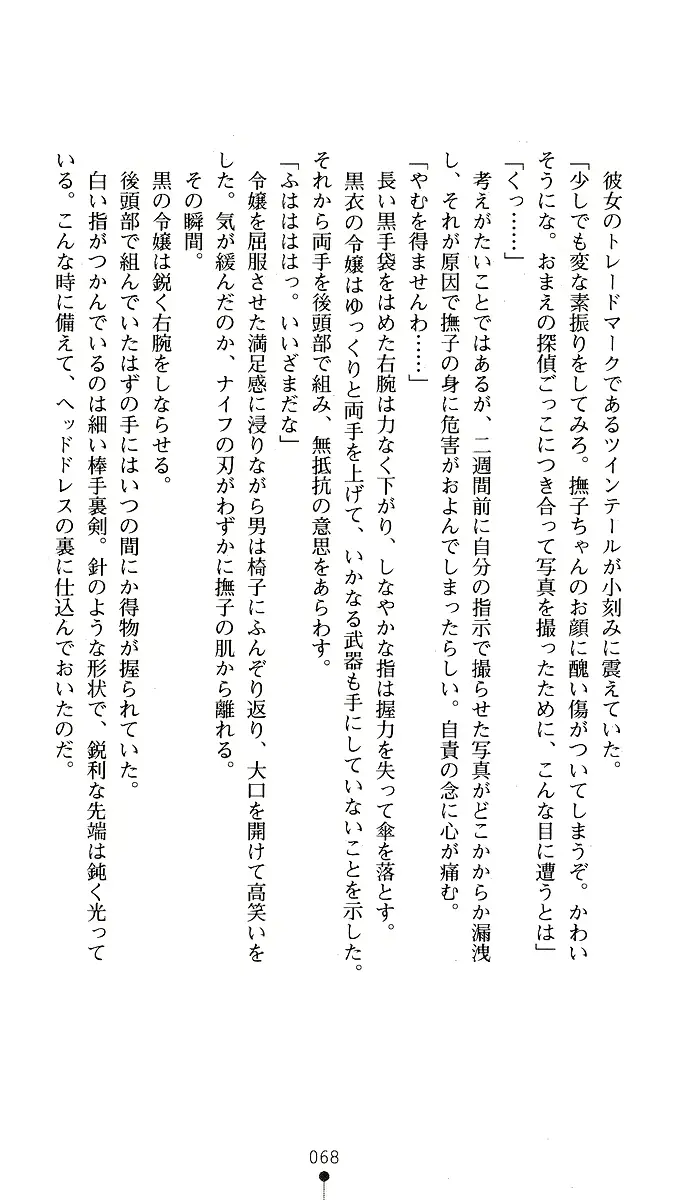 彼女のトレードマークであるツインテールが小刻みに震えていた。
「少しでも変な素振りをしてみろ。撫子ちゃんのお顔に醜い傷がついてしまうぞ。かわい
そうにな。おまえの探偵ごっこにつき合って写真を撮ったために、こんな目に遭うとは」
「くっ……」
考えがたいことではあるが、二週間前に自分の指示で撮らせた写真がどこかからか漏洩
し、それが原因で撫子の身に危害がおよんでしまったらしい。自責の念に心が痛む。
「やむを得ませんわ……」
長い黒手袋をはめた右腕は力なく下がり、しなやかな指は握力を失って傘を落とす。
黒衣の令嬢はゆっくりと両手を上げて、いかなる武器も手にしていないことを示した。
それから両手を後頭部で組み、無抵抗の意思をあらわす。
「ふはははっ。いいざまだな」
令嬢を屈服させた満足感に浸りながら男は椅子にふんぞり返り、大口を開けて高笑いを
した。気が緩んだのか、ナイフの刃がわずかに撫子の肌から離れる。
その瞬間。
黒の令嬢は鋭く右腕をしならせる。
後頭部で組んでいたはずの手にはいつの間にか得物が握られていた。
白い指がつかんでいるのは細い棒手裏剣。針のような形状で、鋭利な先端は鈍く光って
いる。こんな時に備えて、ヘッドドレスの裏に仕込んでおいたのだ。
068